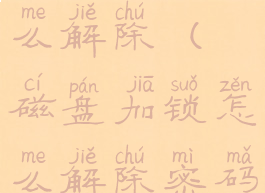 me jiě chú
么解除（
cí pán jiā suǒ zěn
磁盘加锁怎
me jiě chú mì mǎ
么解除密码